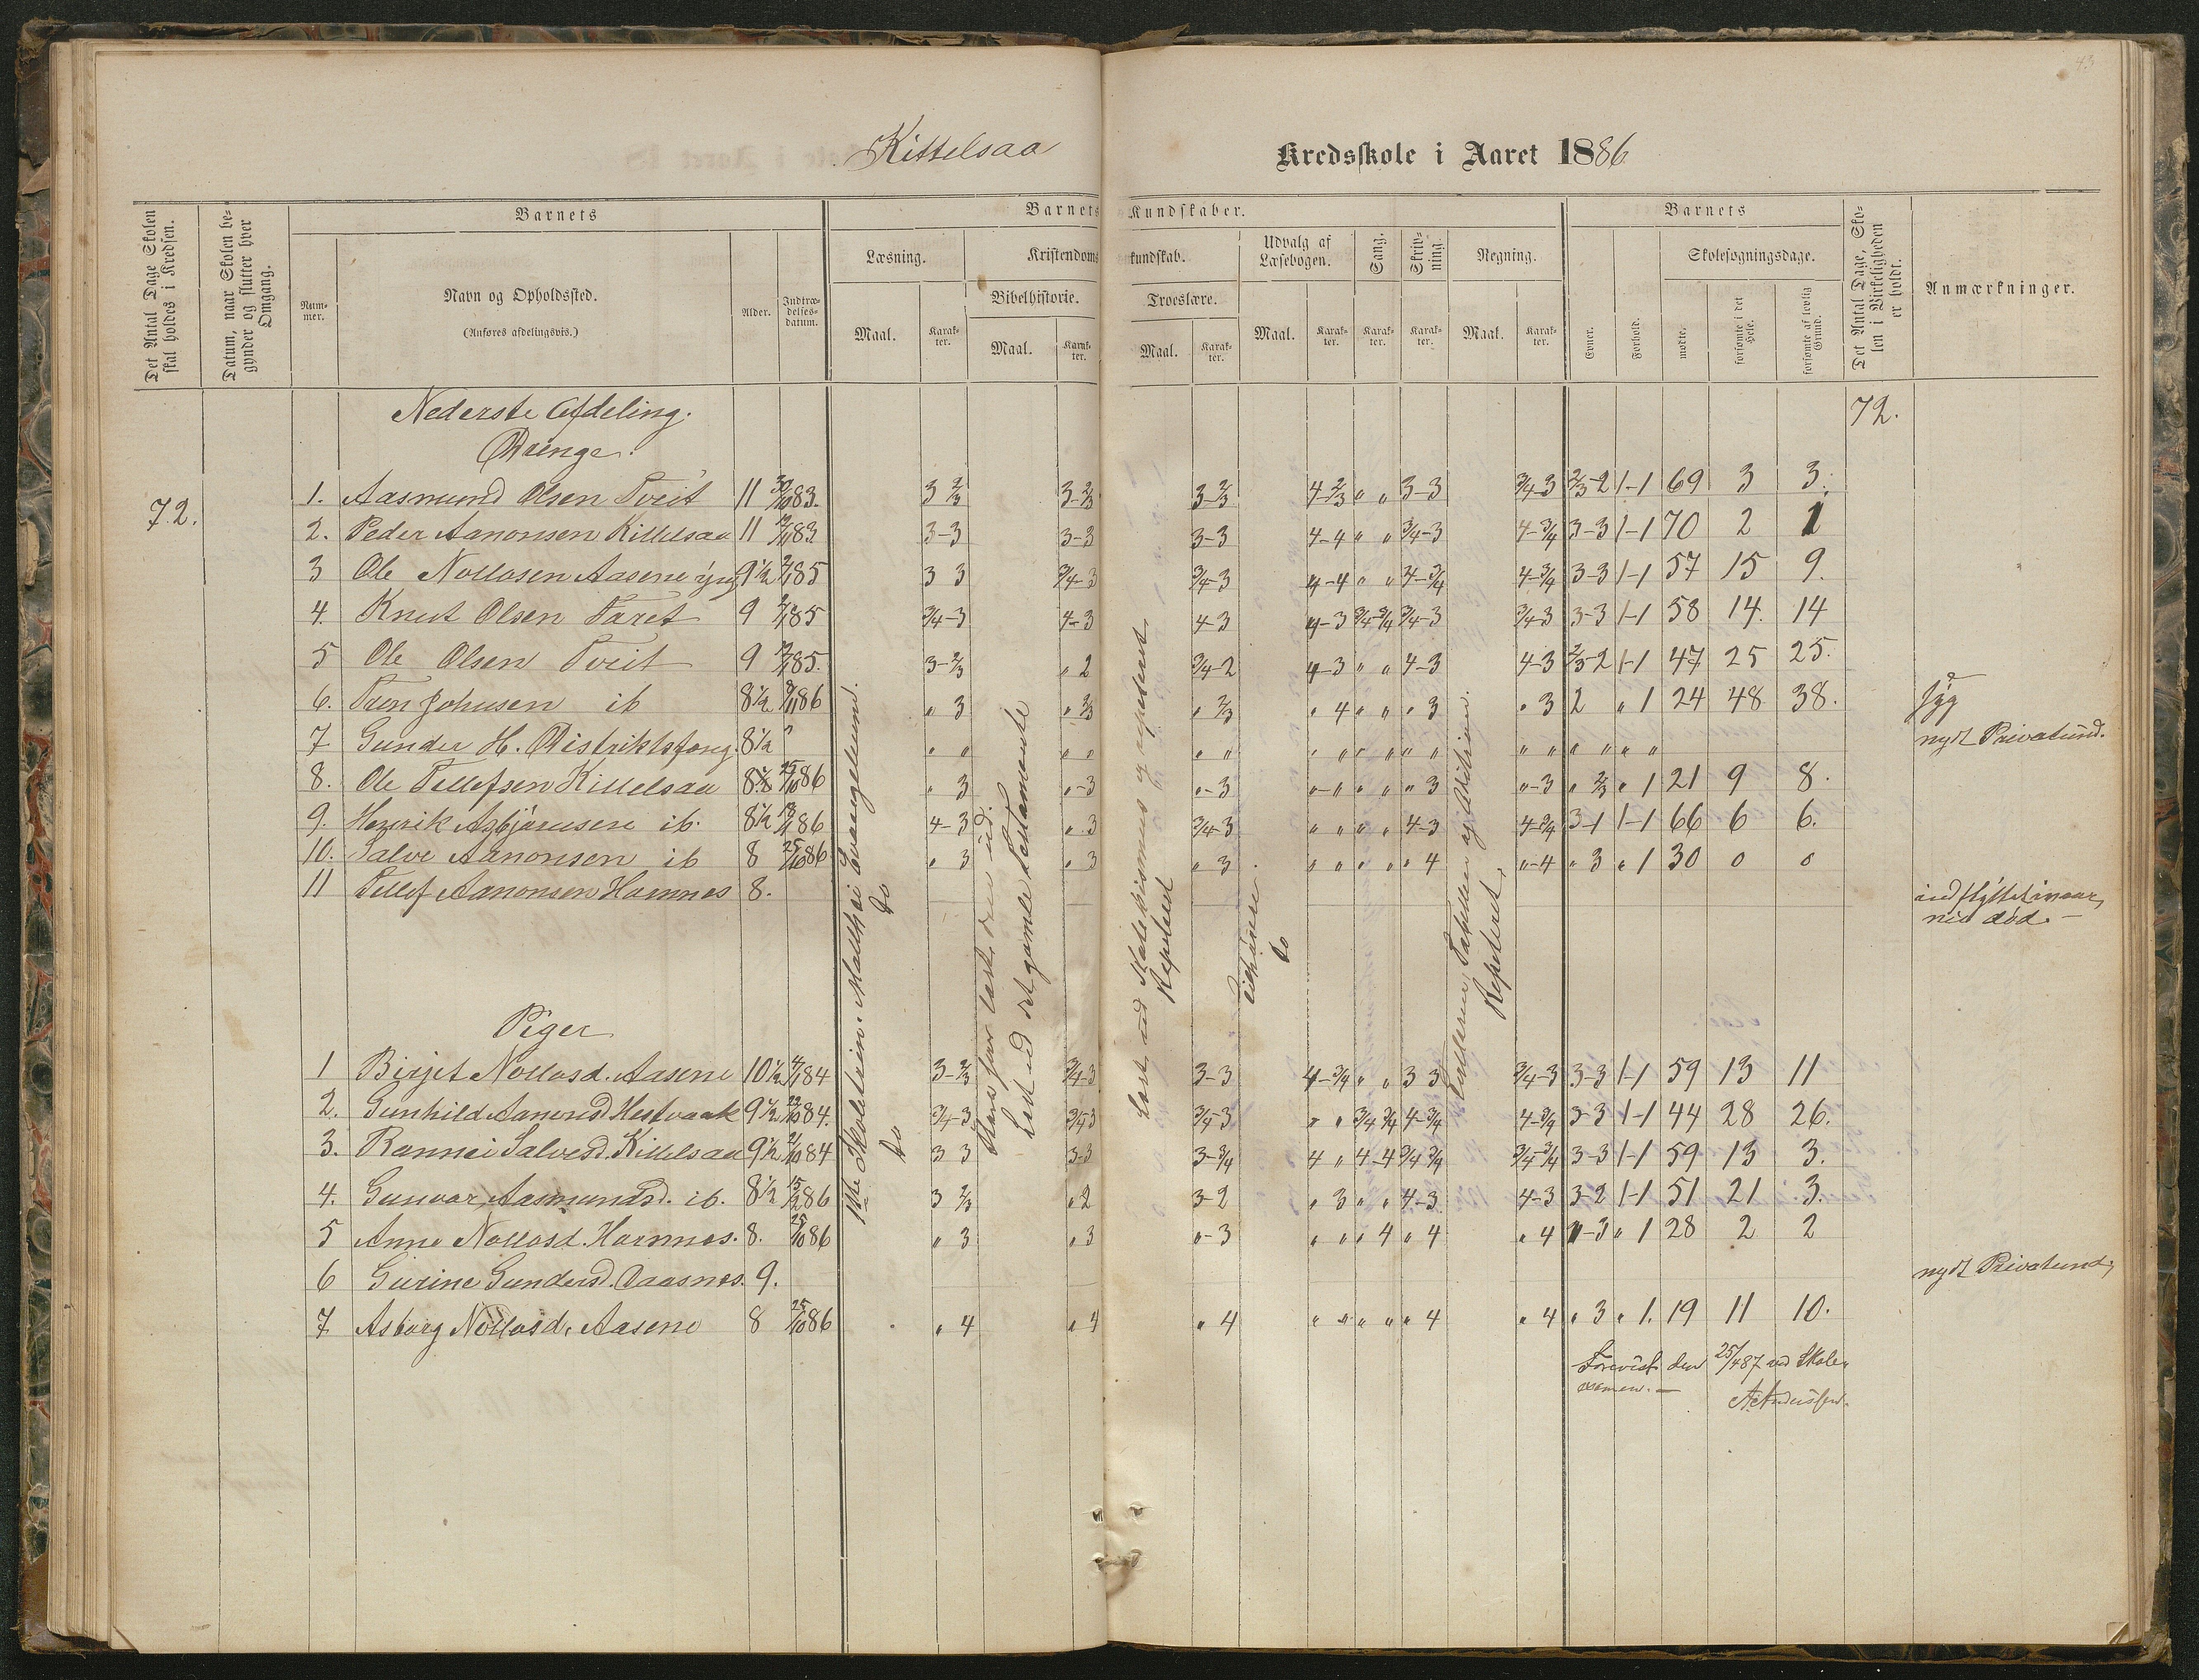 43
Kittelsaa Kredsskole i Aaret 1886
Det Antal Dage Skolen skal holdes i Kredsen.
Datum, naar Skolen begynder og slutter hver Omgang.
Barnets
Nummer.
Navn og Opholdssted.
(Anføres afdelingsvis.)
Alder.
Indtrædelsesdatum.
Barnets Kundskaber.
Læsning.
Maal.
Karakter.
Kristendomskundskab.
Bibelhistorie.
Maal.
Karakter.
Troeslære.
Maal.
Karakter.
Udvalg af Læsebogen.
Maal.
Karakter.
Sang.
Karakter.
Skrivning.
Karakter.
Regning.
Maal.
Karakter.
Barnets
Evner.
Forhold.
Skolesøgningsdage.
mødte.
forsømte i det Hele.
forsømte af lovlig Grund.
Det Antal Dage, Skolen i Virkeligheden er holdt.
Anmærkninger.
72.
72.
Nederste Afdeling.
Drenge.
1. Aasmund Olsen Tveit 11 30/10 83. 3 2/3 3-2/3 3-2/3 4-2/3 " " 3-3 3/4-3 2/3-2 1-1 69 3 3.
2. Peder Aanonsen Kittelsaa 11 83 3-3 3-3 3-3 4-4 " " 3/4-3 4-3/4 3-3 1-1 70 2 1
3 Ole Nollosen Aasene yng 9 1/2 85 3 3 3/4-3 3/4-3 4-4 " " 4-3/4 4-3/4 3-3 1-1 57 15 9.
4. Knut Olsen Taret 9 85 3/4-3 4-3 4-3 4-3 3/4-3/4 3/4-3 3/4-3 3-3 1-1 58 14. 14
5 Ole Olsen Tveit 9 85. 3-2/3 " 2 3/4-2 4-3 " " 4-3 4-3 2/3-2 1-1 47 25 25.
6. Tron Johnsen ib 8 1/2 86 " 3 " 2/3 " 2/3 " 4 " " " 3 " 3 2 " 1 24 48 38. syg
7 Gunder H. Distriktsfang. 8 1/2 " " " " " " " " " " " " " " " " " " nydt Privatund.
8. Ole Tellefsen Kittelsaa 8 1/2 25/10 86 " 3 "-3 "-3 "-" " " " 3 "-3 " 2/3 " 1 21 9 8.
9. Henrik Asbjørnsen ib. 8 1/2 86 4-3 " 3 3/4-3 " " " " 4-3 4-3/4 3-1 1-1 66 6 6.
10. Salve Aanonsen ib 8 25/10 86 " 3 " 3 " 3 " " " " " 4 "-4 " 3 " 1 30 0 0
11 Tellef Aanonsen Hamnes 8. indflyttet
død.
Piger
1 Birjet Nollosd. Aasene 10 1/2 84 3-2/3 3/4-3 3-3 4-3/4 " " 3 3 3/4-3 3-3 1-1 59 13 11
2. Gunhild Aanonsd Hestvaak 9 1/2 22/10 84. 3/4-3 3/4-3 3/4-3 " " 3/4 3/4 4-3/4 4-3/4 3-3 1-1 44 28 26.
3. Rannei Salvesd. Kittelsaa 9 1/2 21/10 84 3 3 3-3 3-3/4 4 " 4-4 3/4 3/4 3/4-3/4 3-3 1-1 59 13 3.
4. Gunvor Aasmundsd. ib. 8 1/2 86 3 2/3 " 2 3-2 " 3 " " 4-3 4-3 3-2 1-1 51 21 3.
5 Anne Nollosd. Hamnes. 8. 25/10 86 " 3 " 3 "-3 " " " 4 " 4 " 4 "-3 " 1 28 2 2
6 Gurine Gundersd. Oaasnes. 9. nydt Privatund,
7 Asborg Nollosd, Aasene 8 25/10 86 " 4 " 4 " 4 " " " " " 4 " 4 " 3 " 1. 19 11 10.
1ste Skoletrin. Matthæi Evangelium.
do
do
Lest ud det gamle Testamente
Lest ud Katekismus og repeteret.
Repeteret
do
Tabellen og Addition.
Repeteret.
Forevist den 25/4 87 ved Skole-
examen. —